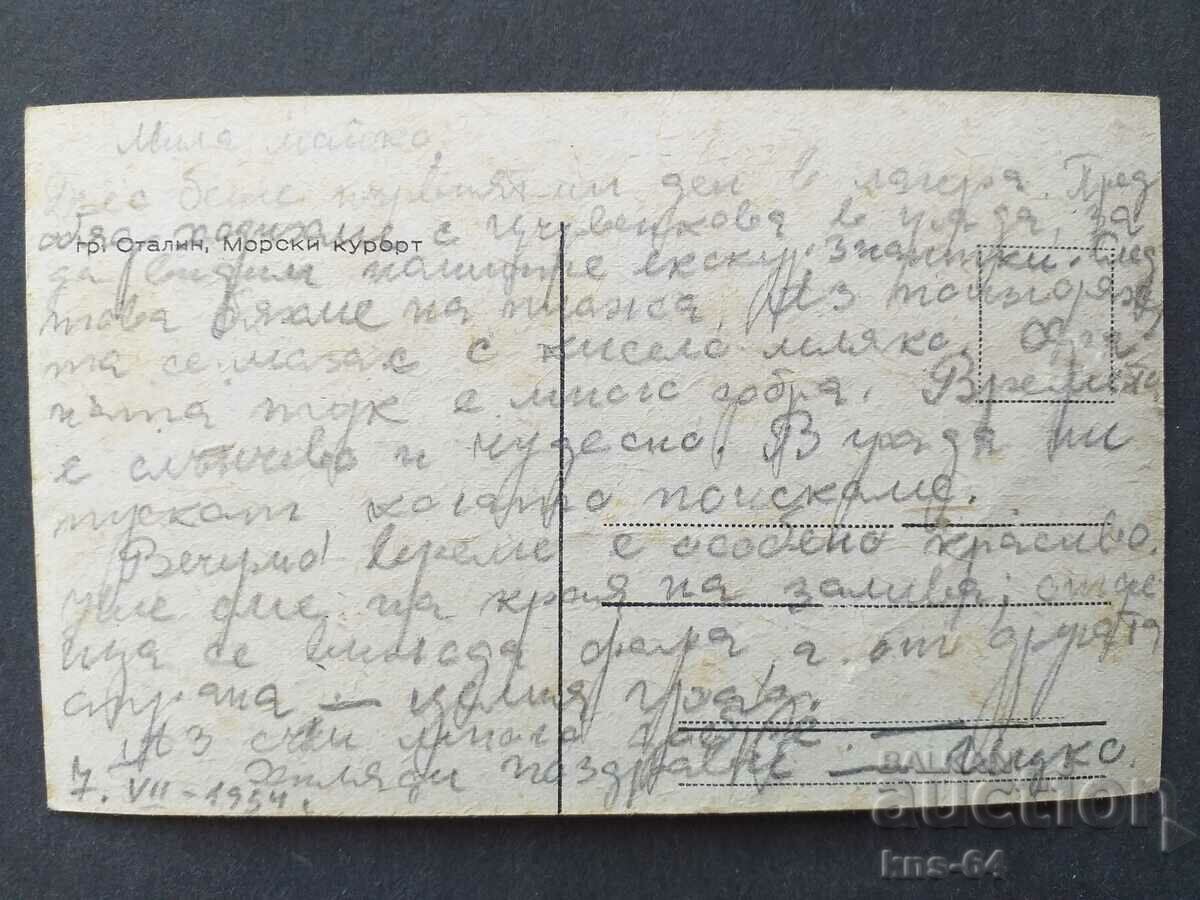 Мила майко,
Днес беше първият ми ден в лагера. Пред
обяд с Червенкова в града, за
гр. Сталин, Морски курорт
да видим нашите екскурзиантки. След
това бяхме на плажа. Аз
та се мазах с кисело мляко.
ната тук е много добра. Времето
е слънчево и чудесно. В града ни
пускат когато поискаме.
Вечерно време е особено красиво.
Ние сме на края на залива, отсре
ща се вижда фара, а от другата
страна — целия град.
Аз съм много добре. —
Хиляди поздрави — Лидко.
7. VII - 1954.
BALKAN
auction
kns-64